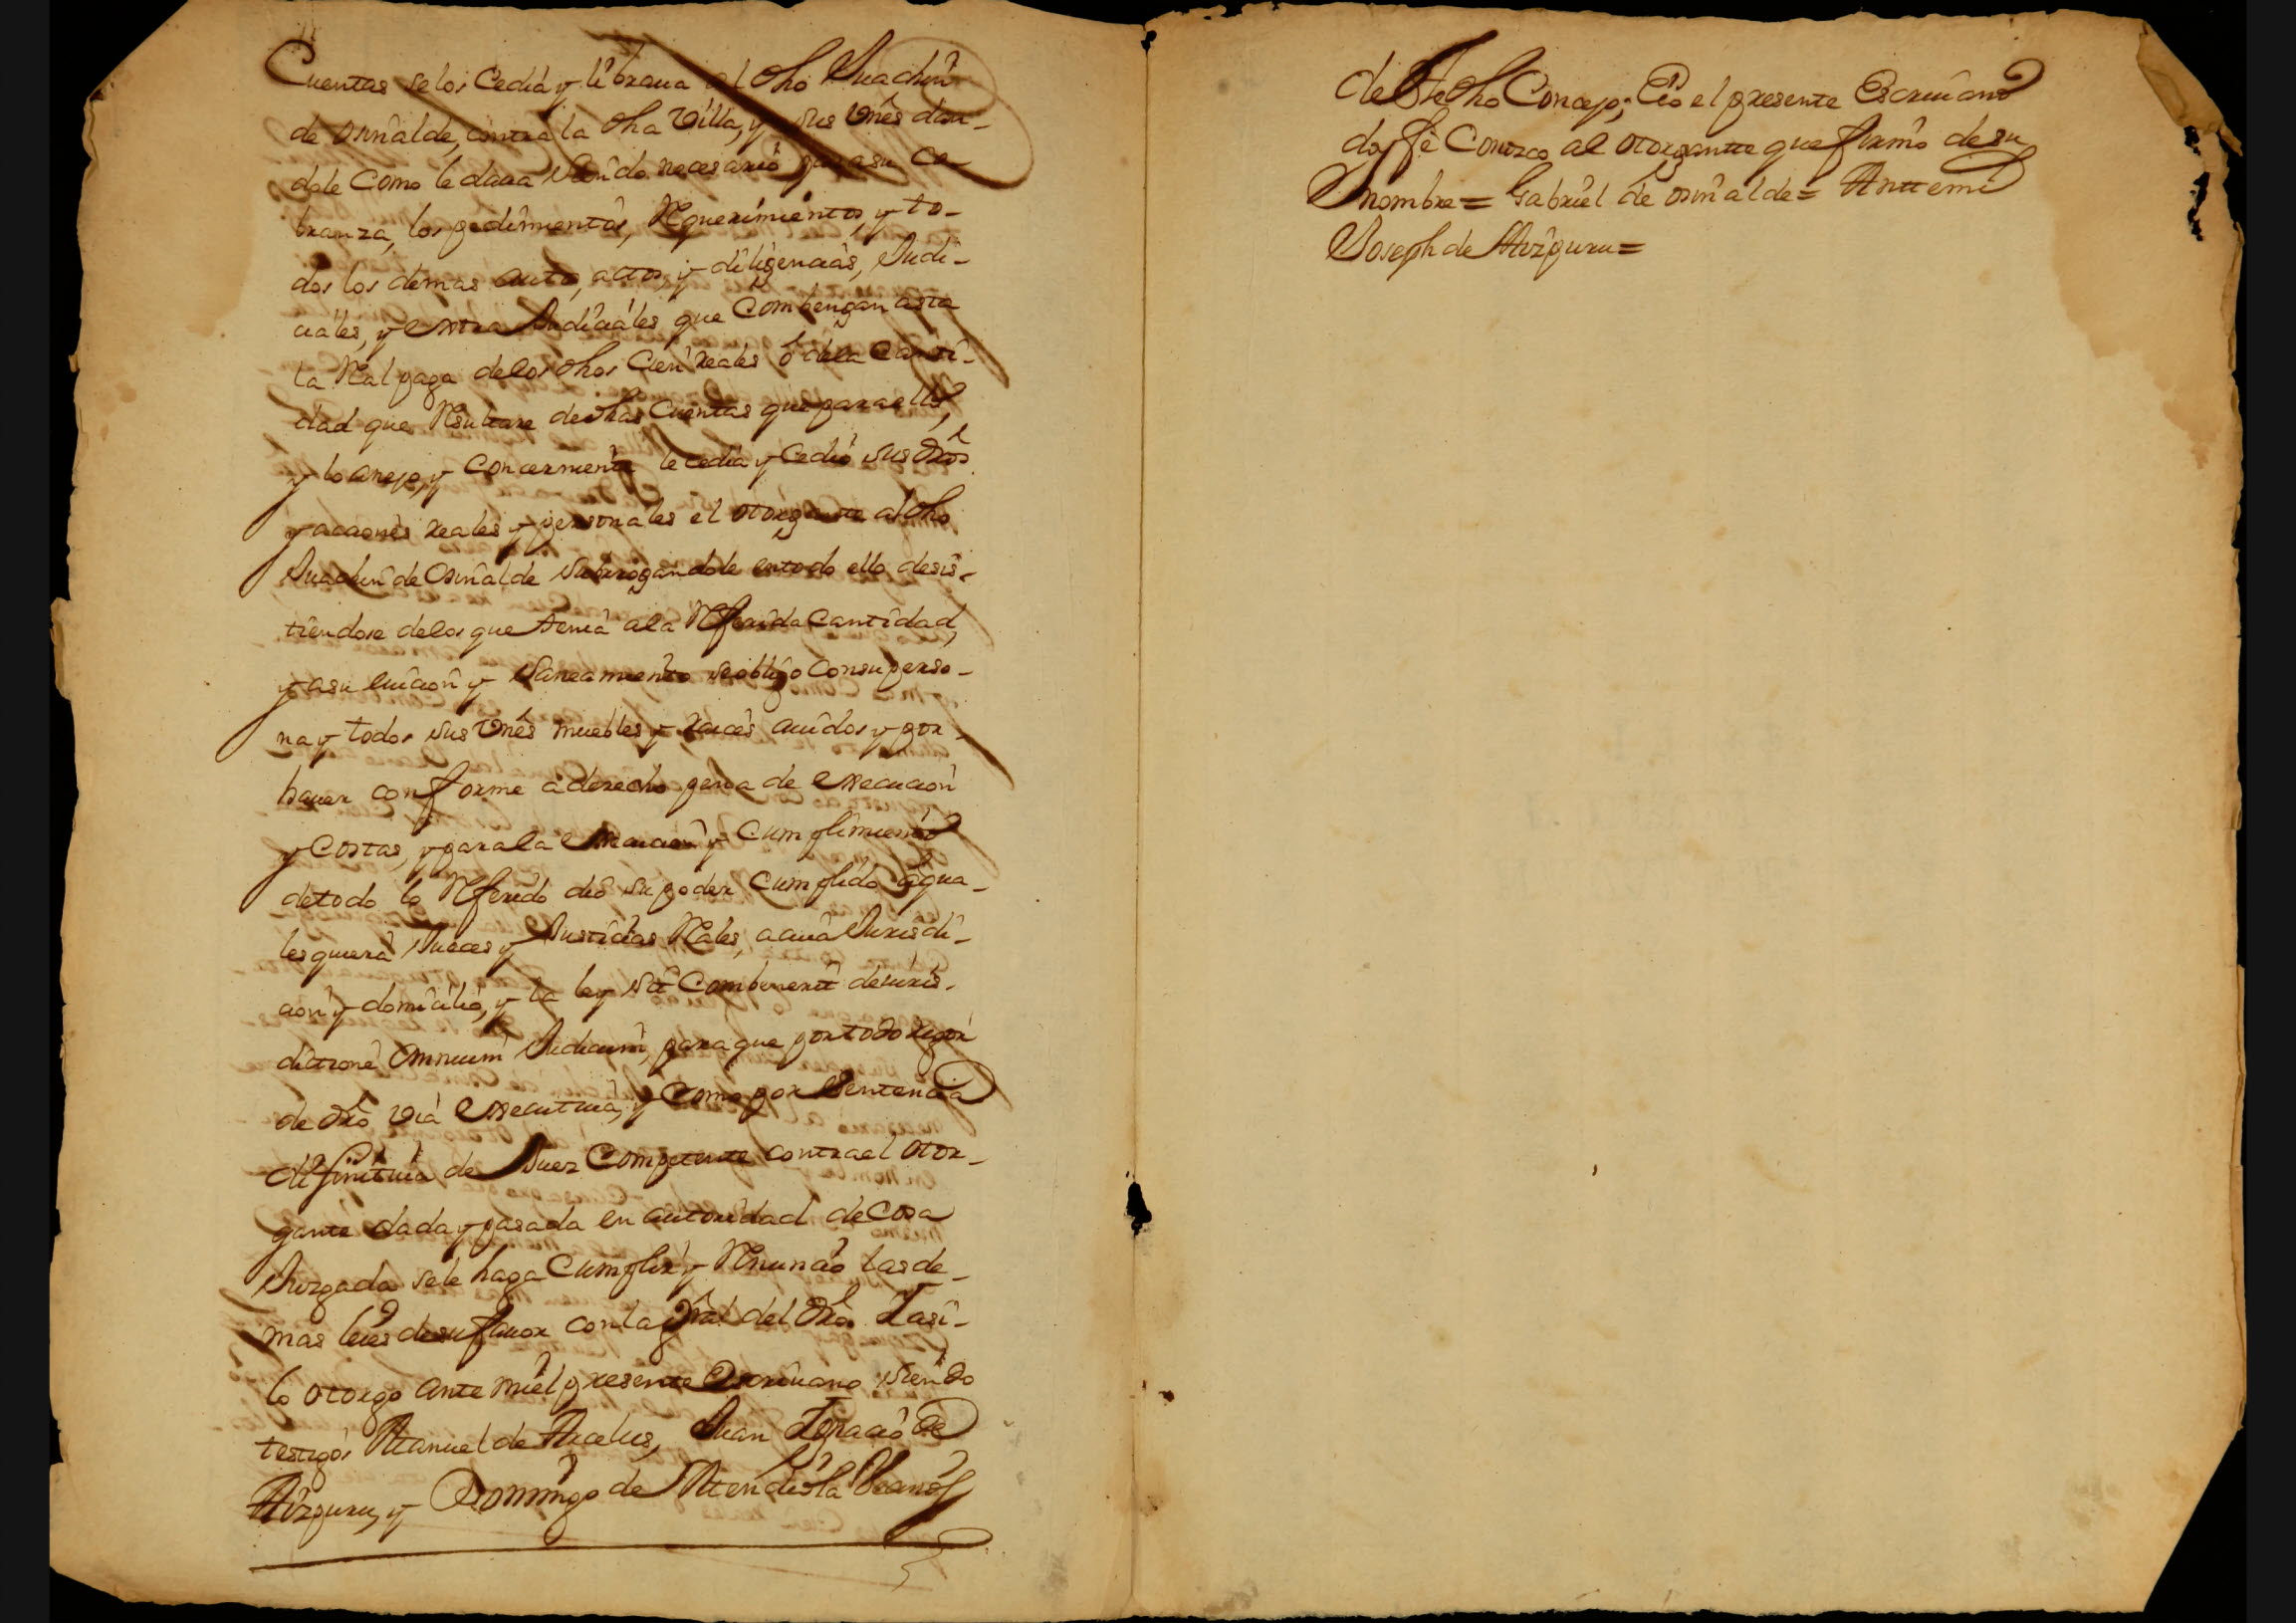 Cuentas se los Cedia y libraua al dho Juachin
de osinalde, contra la dha Villa, y sus Vnes dan-
dole como le daua siendo necesario para su co-
branza, los pedimientos, Requerimientos, y to-
dos los demas autos, actos, y diligencias, Judi-
ciales, y extra Judiciales, que Combengan asta
la Real paga de los dhos Cien reales ó de la Canti-
dad que Resultare de dhas Cuentas que para ello,
y lo anejo, y concerniente le cedia y Cedio sus dros
y acciones reales y personales el otorgante al dho
Juachin de Osinalde Subrrogandole en todo ello desis-
tiendose de los que tenia a la Referida Cantidad,
y a su euicion y Saneamiento se obligo con su perso-
na y todos sus Vnes muebles y raices auidos y por
hauer conforme a derecho pena de execucion
y Costas, y para la execucion y Cumplimiento
de todo lo Referido dio su poder Cumplido a qua-
lesquiera Jueces y Justicias Reales, a cuia Jurisdi-
cion y domicilio, y la ley sit Combenerit de iuris-
dictione omnium Judicum, para que por todo rigor
de dro via executiua, y como por Sentencia
difinitiua de Juez Competente contra el otor-
gante dada y pasada en autoridad de Cosa
Juzgada se le haga Cumplir y Renuncio las de-
mas leies de su fauor con la gral del dro. I asi-
lo otorgo ante mi el presente Escriuano siendo
testigos Manuel de Arcelus, Juan Ignacio de
Aizpuru, y Domingo de Mendiola Vecinos
de este dho Concejo; Eio el presente Escriuano
doy fe Conozco al otorgante que firmo de su
nombre = Gabriel de osinalde = Antte mi
Joseph de Aizpuru =